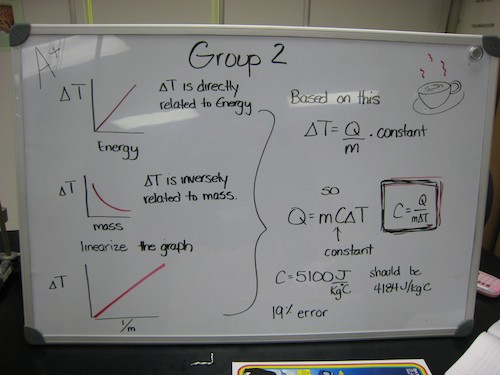 A+
Group 2
ΔT
ΔT is directly
related to Energy
Energy
ΔT
ΔT is inversely
related to mass.
mass
linearize the graph
ΔT
1/m
Based on this
ΔT = Q/m · constant
so
Q = mCΔT
constant
C = Q/mΔT
C = 5100 J/kg°C
should be
4184 J/kg C
19% error